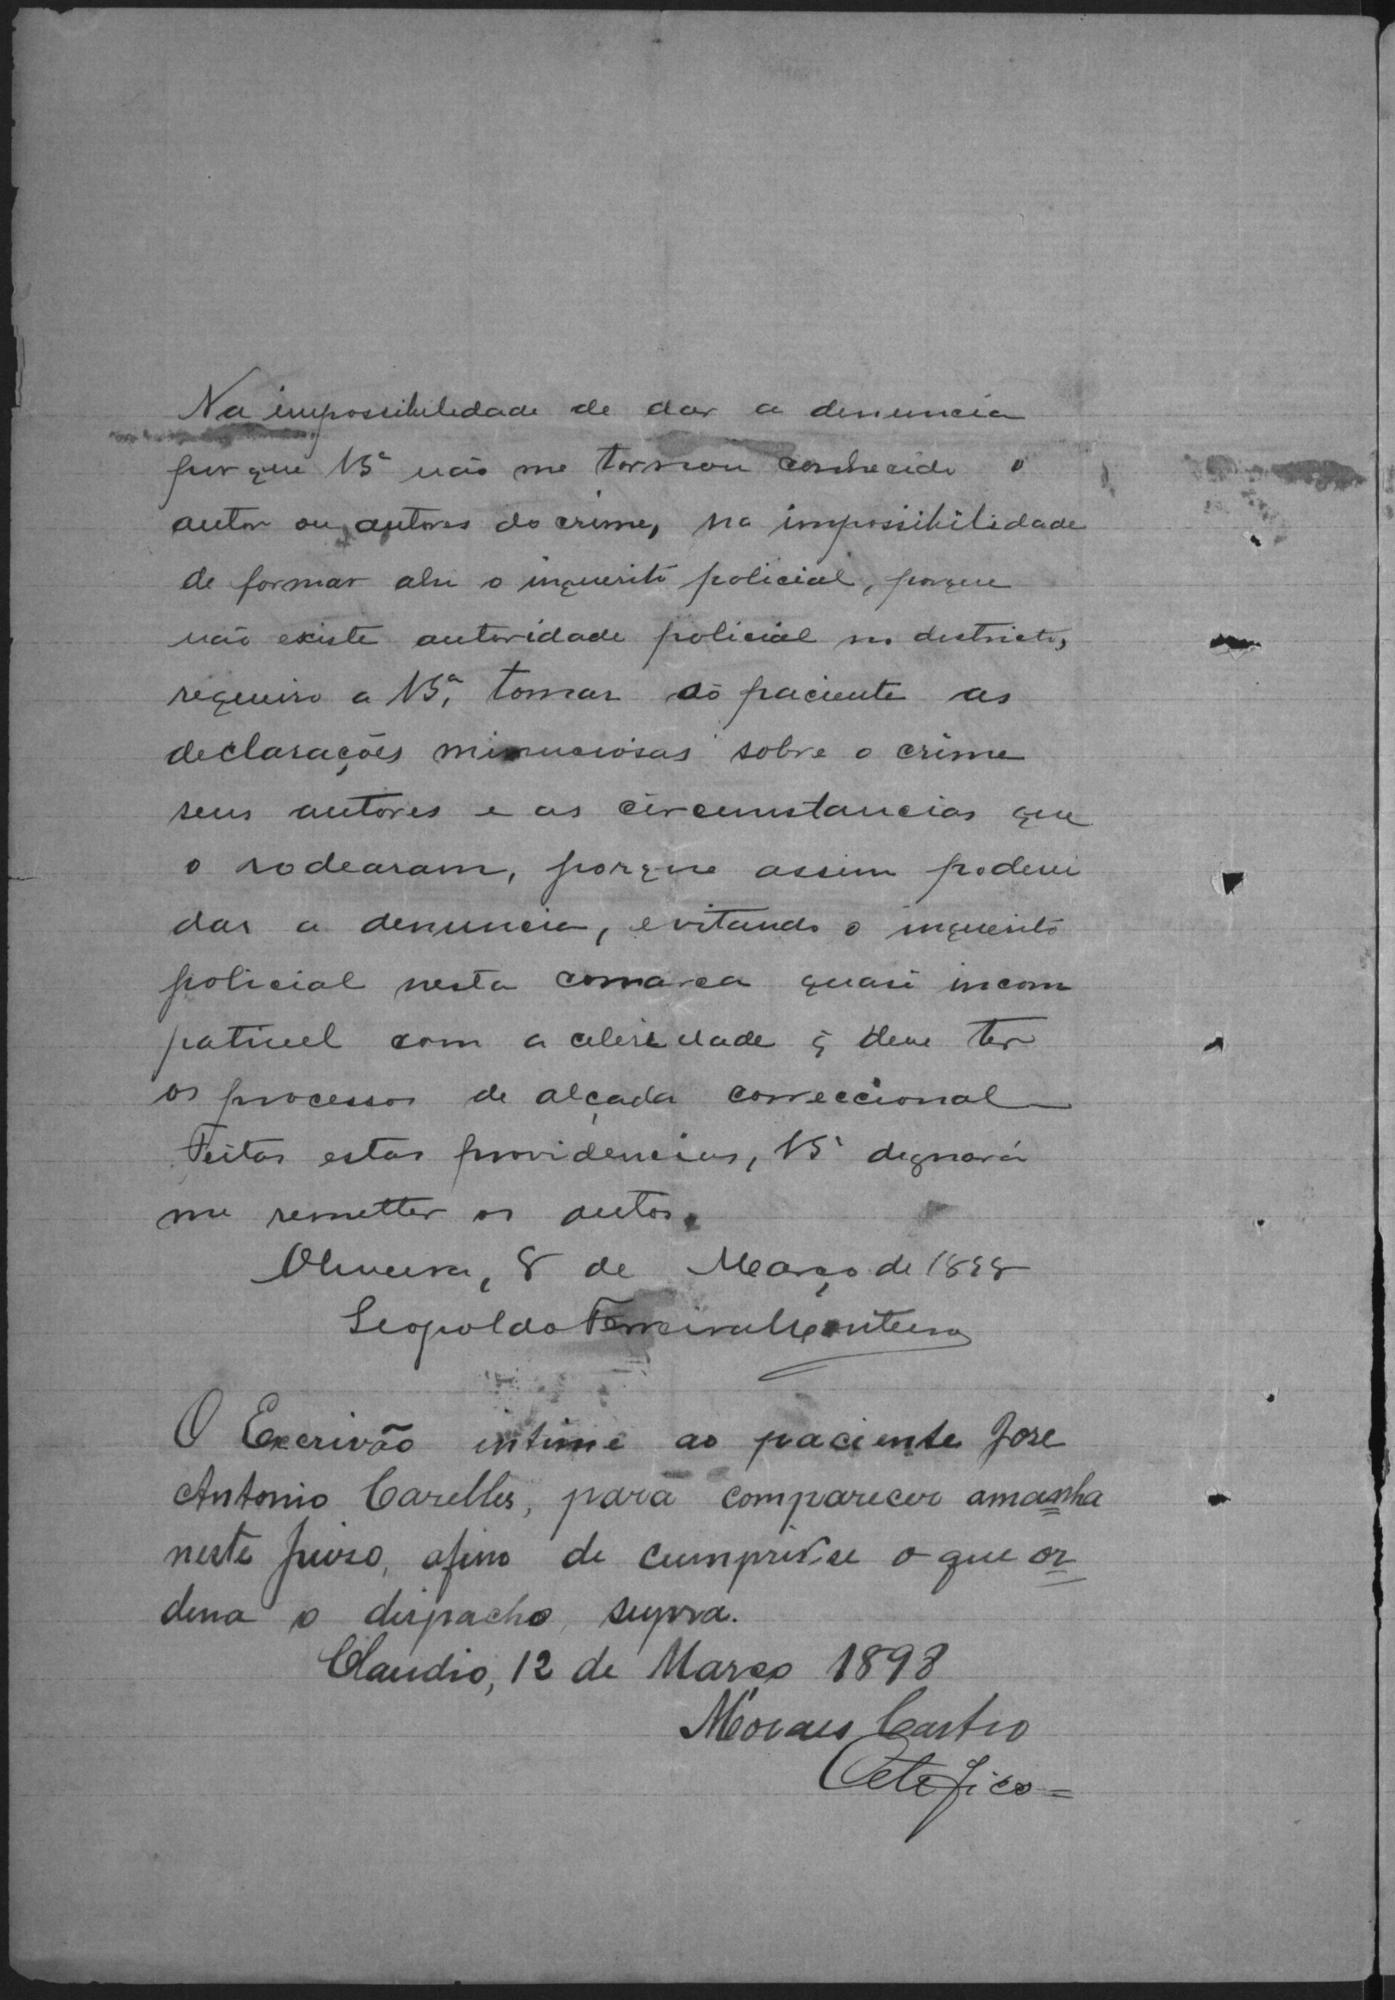 Na impossibilidade de dar a denuncia
porque VSª não me tornou conhecido o
autor ou autores do crime, na impossibilidade
de formar ahi o inquerito policial, porque
não existe autoridade policial no districto,
requeiro a VSª, tomar ao paciente as
declarações minuciosas sobre o crime
seus autores e as circumstancias que
o rodearam, porque assim poderei
dar a denuncia, evitando o inquerito
policial nesta comarca quasi incom
pativel com a celeridade q̃ deve ter
os processos de alçada correccional
Feitas estas providencias, VSª dignará
me remetter os autos.
Oliveira, 8 de Março de 1898
Leopoldo Ferreira Monteiro
O Escrivão intime ao paciente Jose
Antonio Carelles, para comparecer amanha
neste juiso, afim de cumprir se o que or
dena o dispacho supra.
Claudio, 12 de Março 1898
Moraes Castro